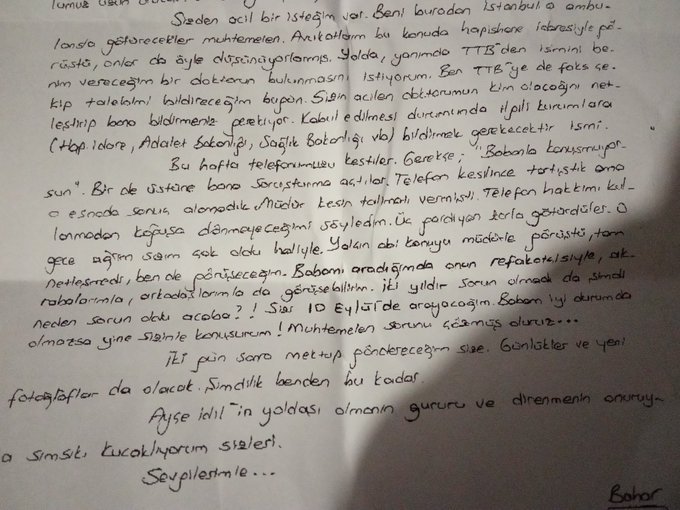 Sizden acil bir isteğim var. Beni buradan İstanbul'a ambu-
lansla götürecekler muhtemelen. Avukatlarım bu konuda hapishane idaresiyle gö-
rüştü, onlar da öyle düşünüyorlarmış. Yolda, yanımda TTB'den ismini be-
nim vereceğim bir doktorun bulunmasını istiyorum. Ben TTB'ye de faks çe-
kip talebimi bildireceğim bugün. Sizin acilen doktorumun kim olacağını net-
leştirip bana bildirmeniz gerekiyor. Kabul edilmesi durumunda ilgili kurumlara
(Hap. idare, Adalet Bakanlığı, Sağlık Bakanlığı vb) bildirmek gerekecektir ismi.
Bu hafta telefonumuzu kestiler. Gerekçe; "Babanla konuşmuyor-
sun". Bir de üstüne bana soruşturma açtılar. Telefon kesilince tartıştık ama
o esnada sonuç alamadık. Müdür kesin talimatı vermişti. Telefon hakkımı kul-
lanmadan koğuşa dönmeyeceğimi söyledim. Üç gardiyan zorla götürdüler. O
gece ağrım sızım çok oldu haliyle. Yalçın abi konuyu müdürle görüştü, tam
netleşmedi, ben de görüşeceğim. Babamı aradığımda onun refakatçisiyle, ak-
rabalarımla, arkadaşlarımla da görüşebilirim. İki yıldır sorun olmadı da şimdi
neden sorun oldu acaba?! Sizi 10 Eylül'de arayacağım. Babam iyi durumda
olmazsa yine sizinle konuşurum! Muhtemelen sorunu çözmüş oluruz...
İki gün sonra mektup göndereceğim size. Günlükler ve yeni
fotoğraflar da olacak. Şimdilik benden bu kadar.
Ayçe İdil'in yoldaşı olmanın gururu ve direnmenin onuruy-
a sımsıkı kucaklıyorum sizleri.
Sevgilerimle...
Bahar